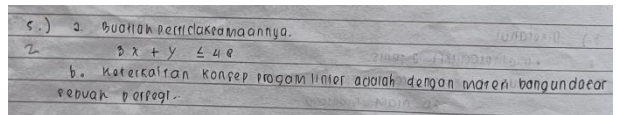 5.) a. Buatlah pertidaksamaannya.
2 3x + y ≤ 48
b. Keterkaitan konsep progam linier adalah dengan materi bangun datar
sebuah persegi.